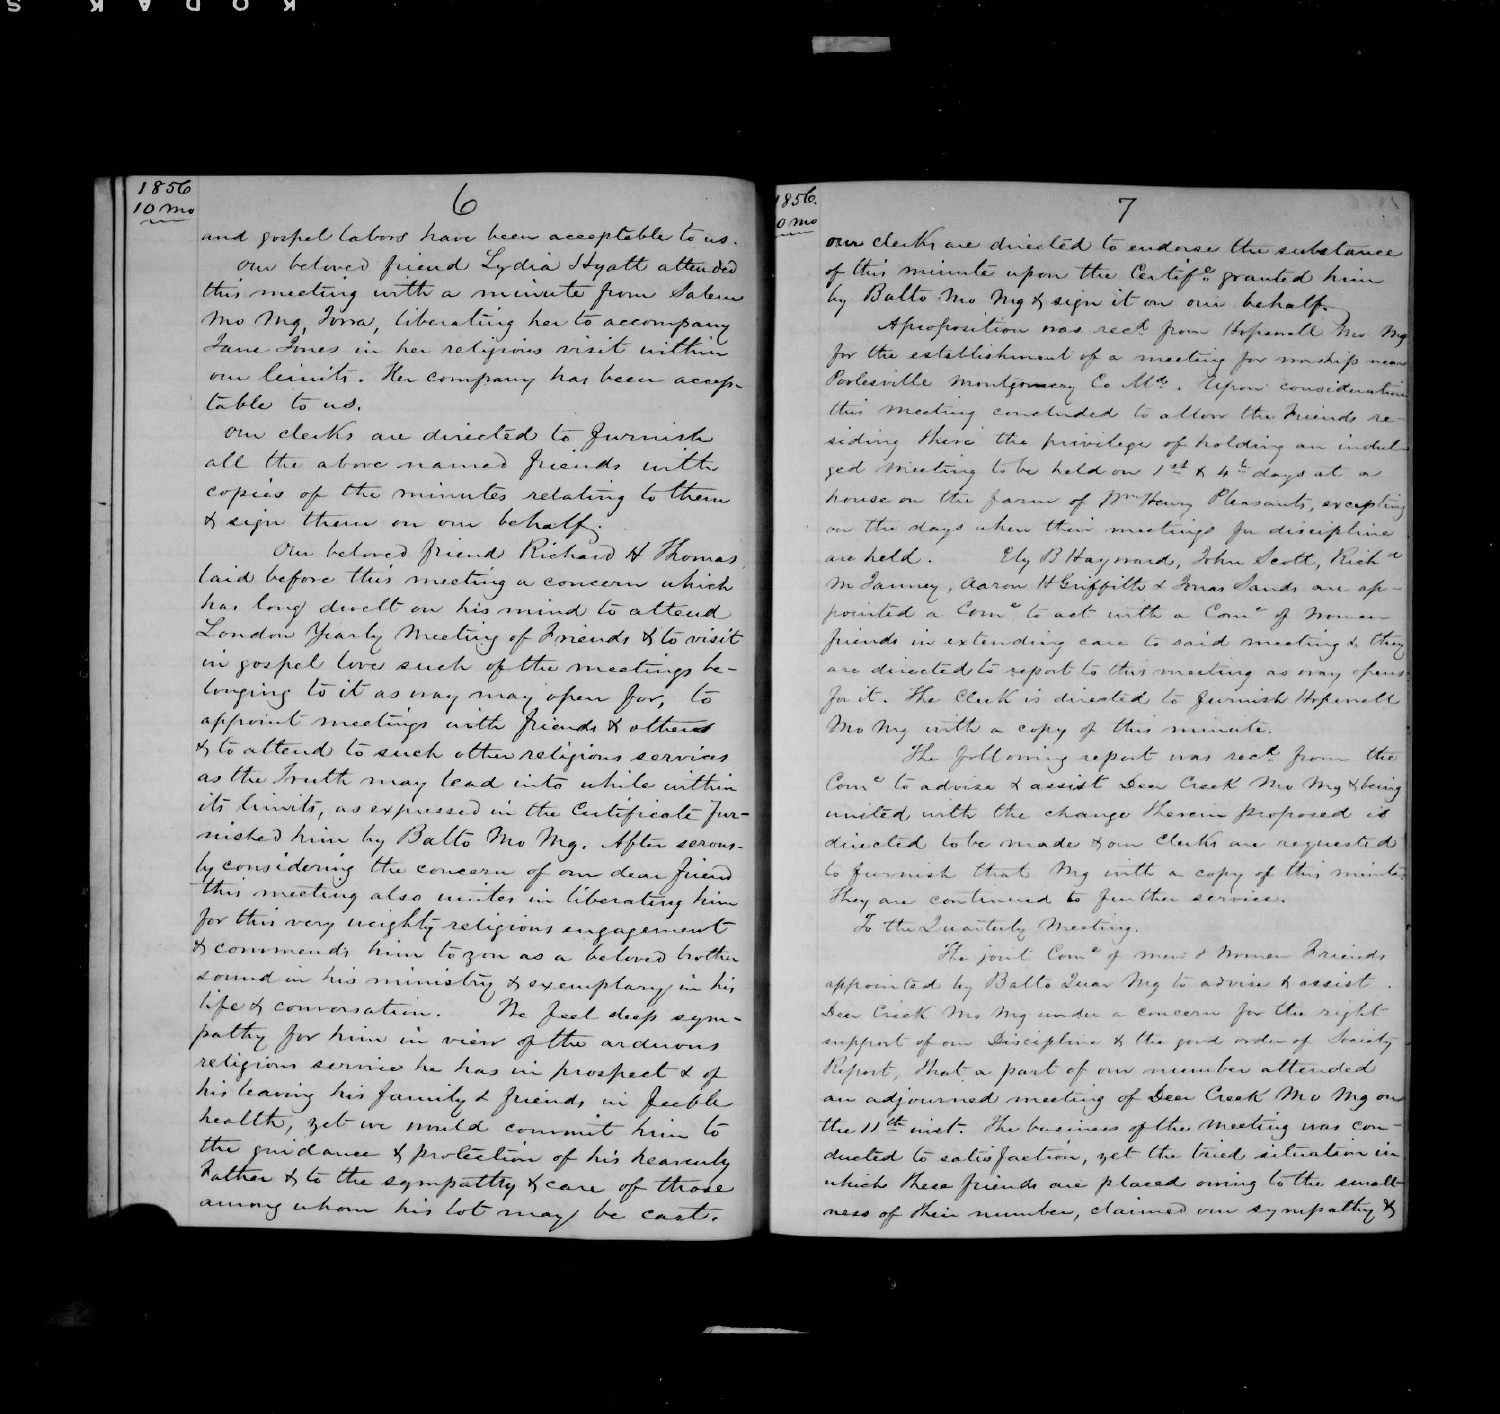 KODAK S
1856
10 mo
6
and gospel labors have been acceptable to us.
Our beloved friend Lydia Hyatt attended
this meeting with a minute from Salem
Mo Mg, Iowa, liberating her to accompany
Jane Jones in her religious visit within
our limits. Her company has been accep-
table to us.
Our clerks are directed to furnish
all the above named friends with
copies of the minutes relating to them
& sign them on our behalf.
Our beloved friend Richard H Thomas
laid before this meeting a concern which
has long dwelt on his mind to attend
London Yearly Meeting of Friends & to visit
in gospel love such of the meetings be-
longing to it as way may open for, to
appoint meetings with friends & others
& to attend to such other religious services
as the Truth may lead into while within
its limits, as expressed in the Certificate fur-
nished him by Balto Mo Mg. After serous-
ly considering the concern of our dear friend
this meeting also unites in liberating him
for this very weighty religious engagement
& commends him to you as a beloved brother
sound in his ministry & exemplary in his
life & conversation. We feel deep sym-
pathy for him in view of the arduous
religious service he has in prospect & of
his leaving his family & friends in feeble
health, yet we would commit him to
the guidance & protection of his heavenly
Father & to the sympathy & care of those
among whom his lot may be cast.
1856.
0 mo
7
our clerks are directed to endorse the substance
of this minute upon the Certife. granted him
by Balto Mo Mg & sign it on our behalf.
A proposition was recd from Hopewell Mo Mg
for the establishment of a meeting for worship near
Poolesville Montgomery Co Md. Upon consideration
this meeting concluded to allow the Friends re-
siding there the privilege of holding an indul-
ged meeting to be held on 1st & 4h days at a
house on the farm of Wm Henry Pleasants, excepting
on the days when their meetings for discipline
are held. Ely B Hayward, John Scott, Richd
M Janney, Aaron H Griffith & Jonas Sands are ap-
pointed a Come to act with a Come of Women
friends in extending care to said meeting & they
are directed to report to this meeting as way opens
for it. The Clerk is directed to furnish Hopewell
Mo Mg with a copy of this minute.
The following report was recd from the
Come to advise & assist Deer Creek Mo Mg & being
united with the change therein proposed is
directed to be made & our Clerks are requested
to furnish that Mg with a copy of this minute.
They are continued to further service.
To the Quarterly Meeting.
The joint Come of men & women Friends
appointed by Balto Quar Mg to advise & assist
Deer Creek Mo Mg under a concern for the right
support of our Discipline & the good order of Society
Report, That a part of our number attended
an adjourned meeting of Deer Creek Mo Mg on
the 11th inst. The business of the meeting was con-
ducted to satisfaction, yet the tried situation in
which these friends are placed owing to the small-
ness of their number, claimed our sympathy &